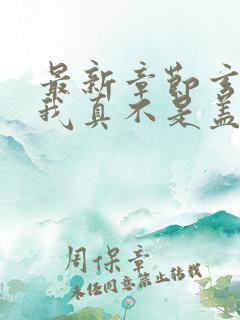 最新章节玄
我真不是盖
周保章
未经同意禁止转载